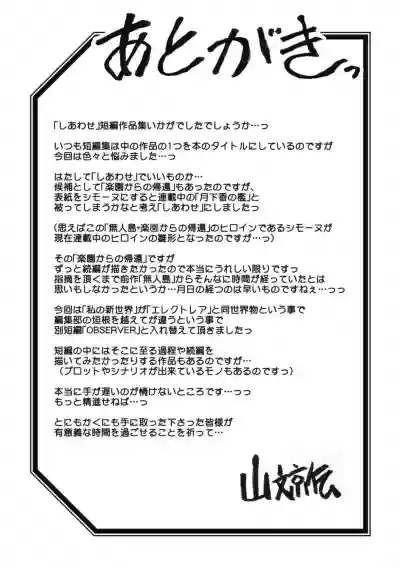 あとがきっ
「しあわせ」短編作品集いかがでしたでしょうか…っ
いつも短編集は中の作品の1つを本のタイトルにしているのですが
今回は色々と悩みました…っ
はたして「しあわせ」でいいものか…
候補として「楽園からの帰還」もあったのですが、
表紙をシモーヌにすると連載中の「月下香の檻」と
被ってしまうかなと考え「しあわせ」にしましたっ
(思えばこの「無人島・楽園からの帰還」のヒロインであるシモーヌが
現在連載中のヒロインの雛形となったのですが…っ)
その「楽園からの帰還」ですが
ずっと続編が描きたかったので本当にうれしい限りですっ
指摘を頂くまで前作「無人島」からそんなに時間が経っていたとは
思いもしなかったというか…月日の経つのは早いものですねぇ…っっ
今回は「私の新世界」が「エレクトレア」と同世界物という事で
編集部の垣根を越えてが違うという事で
別短編「OBSERVER」と入れ替えて頂きましたっ
短編の中にはそこに至る過程や続編を
描いてみたかったりする作品もあるのですが…
(プロットやシナリオが出来ているモノもあるのですっ)
本当に手が遅いのが情けないところです…っっ
もっと精進せねば…っ
とにもかくにも手に取った下さった皆様が
有意義な時間を過ごせることを祈って…
山文京伝